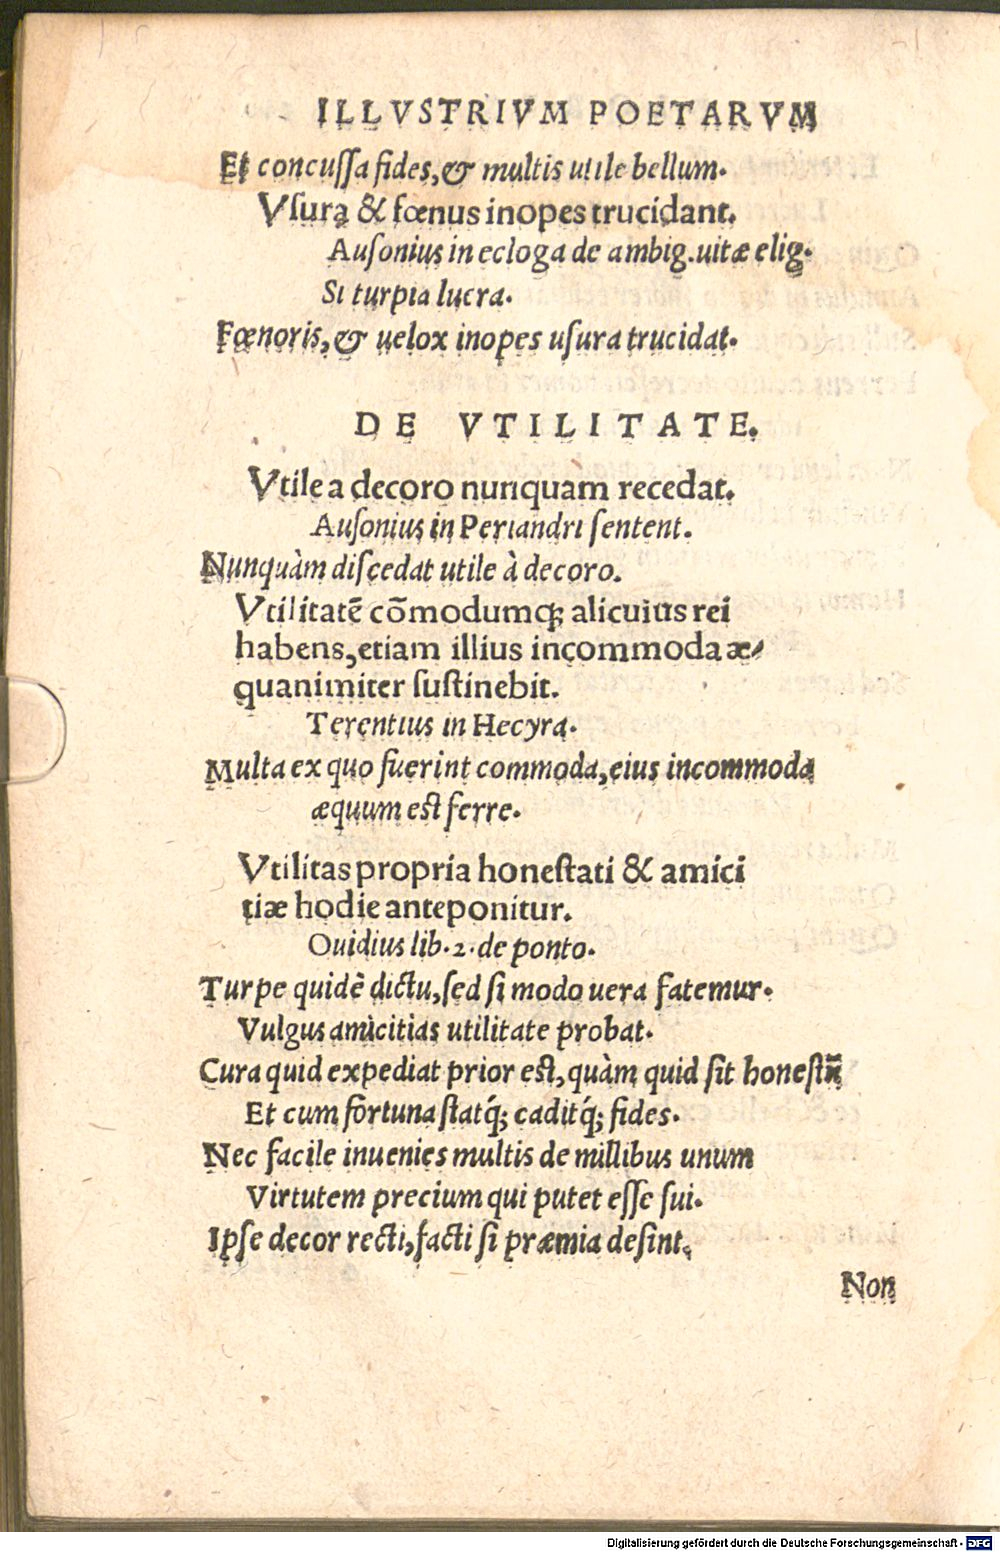 ILLVSTRIVM POETARVM
Et concuſſa fides, & multis utile bellum.
Vſura & fœnus inopes trucidant.
Auſonius in ecloga de ambig. uitæ elig.
Si turpia lucra.
Fœnoris, & uelox inopes uſura trucidat.
DE VTILITATE.
Vtile a decoro nunquam recedat.
Auſonius in Periandri ſentent.
Nunquàm diſcedat utile à decoro.
Vtilitatē cōmodumq; alicuius rei
habens, etiam illius incommoda æ-
quanimiter ſuſtinebit.
Terentius in Hecyra.
Multa ex quo fuerint commoda, eius incommoda
æquum eſt ferre.
Vtilitas propria honeſtati & amici
tiæ hodie anteponitur.
Ouidius lib. 2. de ponto.
Turpe quidē dictu, ſed ſi modo uera fatemur.
Vulgus amicitias utilitate probat.
Cura quid expediat prior eſt, quàm quid ſit honeſtū
Et cum fortuna ſtatq́; caditq́; fides.
Nec facile inuenies multis de millibus unum
Virtutem precium qui putet eſſe ſui.
Ipſe decor recti, facti ſi præmia deſint,
Non
Digitalisierung gefördert durch die Deutsche Forschungsgemeinschaft - DFG